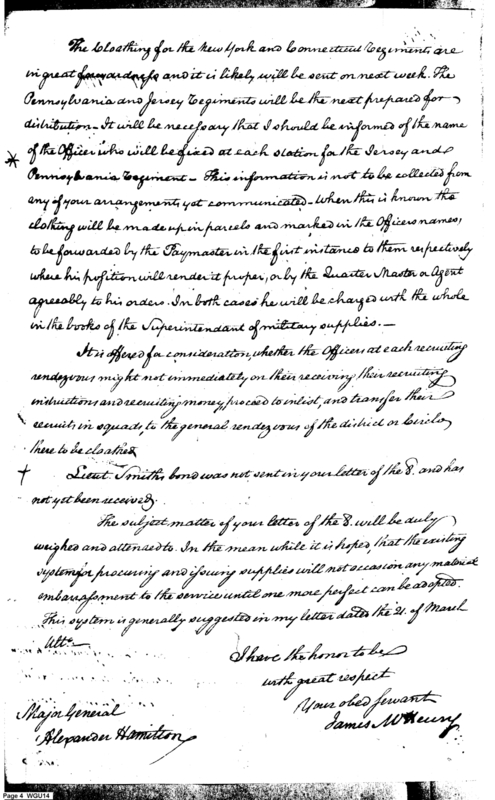 The Cloathing for the New York and Connecticut Regiments are
in great forwardness and it is likely will be sent on next week. The
Pennsylvania and Jersey Regiments will be the next prepared for
distribution_ It will be necessary that I should be informed of the name
of the Officer who will be fixed at each station for the Jersey and
* Pennsylvania Regiment_ This information is not to be collected from
any of your arrangements yet communicated_ When this is known the
clothing will be made up in parcels and marked in the Officers names,
to be forwarded by the Paymaster in the first instance to them respectively
where his position will render it proper, or by the Quarter Master or Agent
agreeably to his orders. In both cases he will be charged with the whole
in the books of the Superintendant of military supplies._
It is offered for consideration, whether the Officers at each recruiting
rendezvous might not immediately on their receiving their recruiting
instructions and recruiting money, proceed to inlist, and transfer their
recruits in squads, to the general rendezvous of the district or Circle
there to be cloathed
† Lieut. Smiths bond was not sent in your letter of the 8. and has
not yet been received.
The subject matter of your letter of the 8. will be duly
weighed and attended to. In the mean while it is hoped, that the existing
system for procuring and issuing supplies will not occasion any material
embarrassment to the service until one more perfect can be adopted.
This system is generally suggested in my letter dated the 21. of March
Ulto.
I have the honor to be
with great respect
Your obed servant
James McHenry
Major General
Alexander Hamilton
Page 4 WGU14